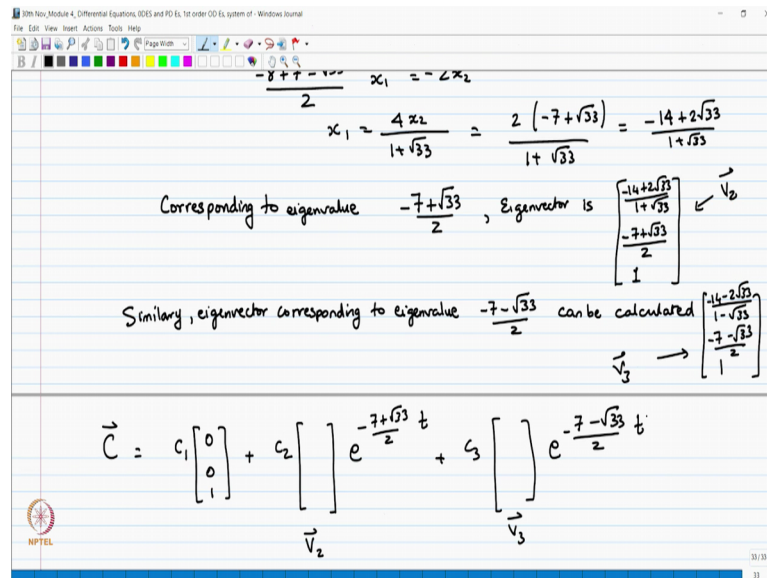 30th Nov_Module 4_ Differential Equations, ODES and PD Es, 1st order OD Es, system of - Windows Journal
File Edit View Insert Actions Tools Help
Page Width
B I
2 x₁ = -2x₂
x₁ = 4x₂ / (1+√33) = 2(-7+√33) / (1+√33) = (-14+2√33) / (1+√33)
Corresponding to eigenvalue (-7+√33)/2, Eigenvector is [(-14+2√33)/(1+√33), (-7+√33)/2, 1] ← v⃗₂
Similary, eigenvector corresponding to eigenvalue (-7-√33)/2 can be calculated [(-14-2√33)/(1-√33), (-7-√33)/2, 1]
v⃗₃ →
C⃗ = c₁ [0 0 1] + c₂ [ ] e^((-7+√33)/2 t) + c₃ [ ] e^((-7-√33)/2 t)
v⃗₂ v⃗₃
NPTEL
33/33
33